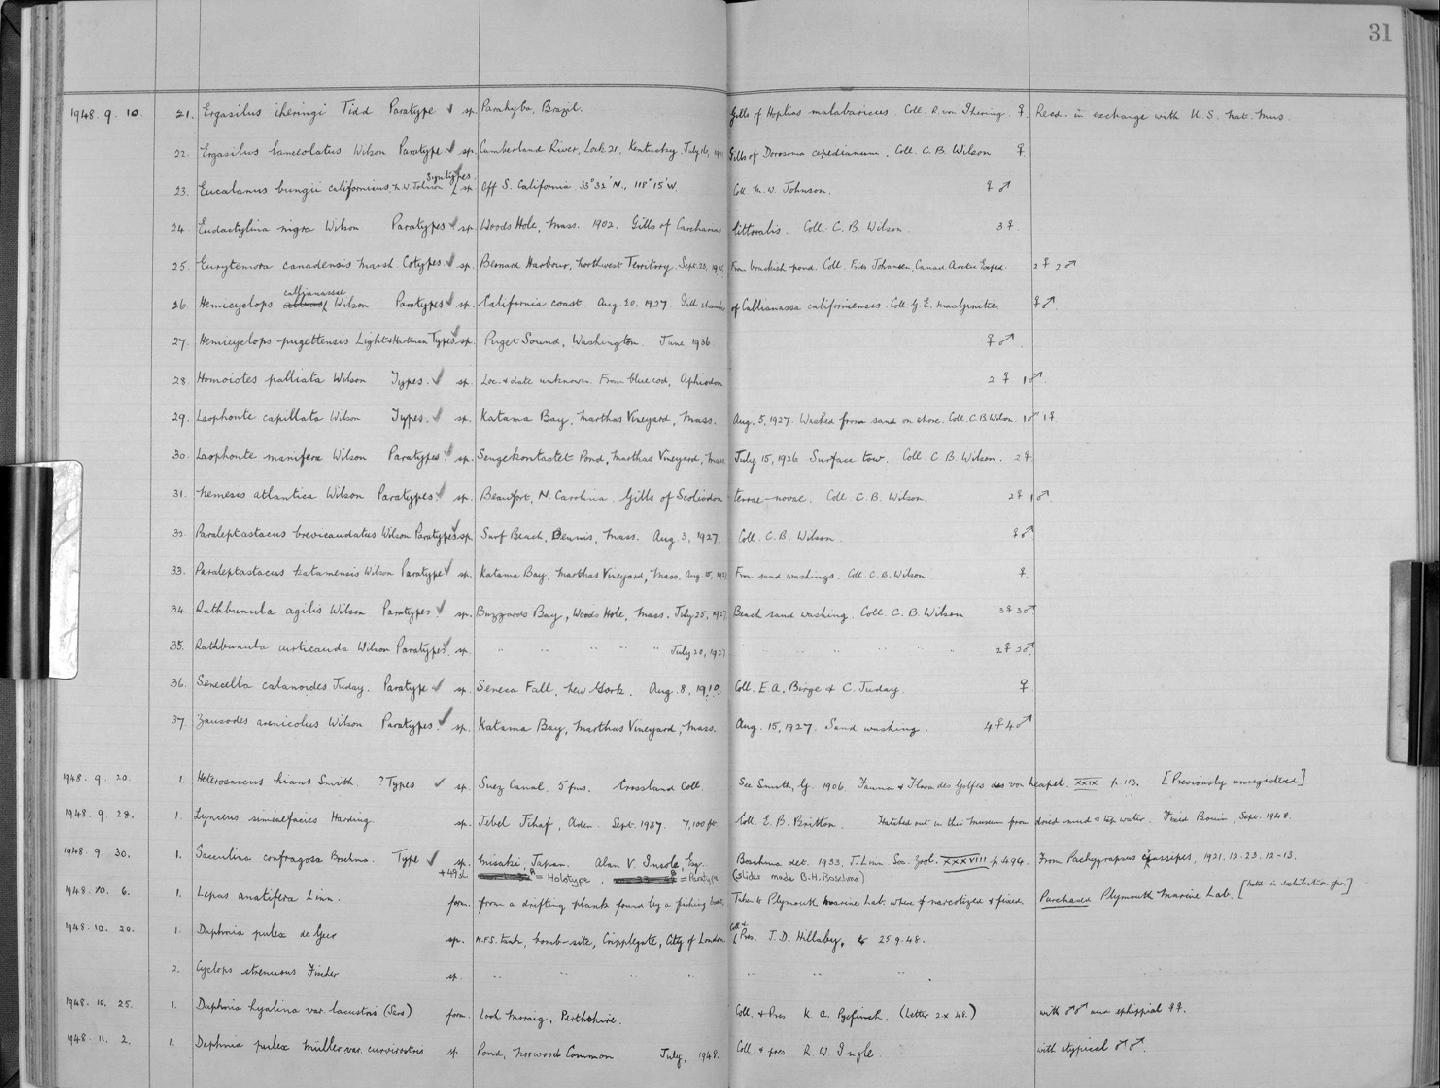 31
1948. 9. 10. 21. Ergasilus iheringi Tidd Paratype sp. Parahyba, Brazil. Gills of Hoplias malabaricus Coll. R. von Ihering. ♀. Recd. in exchange with U.S. Nat. Mus.
22. Ergasilus lanceolatus Wilson Paratype sp. Cumberland River, Lock 21, Kentucky. July 16, 1911 Gills of Dorosoma cepedianum. Coll. C. B. Wilson ♀.
23. Eucalanus bungii californicus, M. W. Johnson Syntypes sp. Off S. California 33° 32' N., 118° 15' W. Coll. M. W. Johnson. ♀ ♂
24. Eudactylina nigra Wilson Paratypes sp. Woods Hole, Mass. 1902. Gills of Carcharias littoralis. Coll. C. B. Wilson. 3♀.
25. Eurytemora canadensis Marsh. Cotypes. sp. Bernard Harbour, Northwest Territory. Sept. 23, From brackish pond. Coll. Frits Johansen, Canad. Arctic Exped. 2♀ 2♂
26. Hemicyclops callianassae Wilson Paratypes sp. California coast Aug. 20. 1927. Gill chamber of Callianassa californiensis. Coll. G. E. MacGinitie. ♀ ♂.
27. Hemicyclops pugettensis Light & Hartman Types sp. Puget Sound, Washington. June 1936 ♀ ♂.
28. Homoiotes palliata Wilson Types. sp. Loc. & date unknown. From blue cod, Ophiodon 2 ♀ 1♂.
29. Laophonte capillata Wilson Types. sp. Katama Bay, Marthas Vineyard, Mass. Aug. 5, 1927. Washed from sand on shore. Coll. C. B. Wilson. 1♂ 1♀
30. Laophonte manifera Wilson Paratypes. sp. Sengekontactet Pond, Marthas Vineyard, Mass July 15, 1926 Surface tow. Coll C. B. Wilson. 2♀
31. Nemesis atlantica Wilson Paratypes. sp. Beaufort, N. Carolina. Gills of Scoliodon terrae-novae. Coll. C. B. Wilson. 2♀ 1♂.
32. Paraleptastacus brevicaudatus Wilson Paratypes sp. Surf Beach, Dennis, Mass. Aug 3, 1927. Coll. C. B. Wilson. ♀ ♂
33. Paraleptastacus katamensis Wilson Paratype sp. Katama Bay, Marthas Vineyard, Mass. Aug. 15, 1927 From sand washings. Coll. C. B. Wilson. ♀.
34. Rathbunula agilis Wilson Paratypes. sp. Buzzards Bay, Woods Hole, Mass. July 25, 1927. Beach sand washing. Coll. C. B. Wilson 3♀ 3♂
35. Rathbunula curticauda Wilson Paratypes. sp. " " " " " July 20, 1927 " " " " " 2♀ 2♂
36. Senecella calanoides Juday. Paratype sp. Seneca Fall, New York. Aug. 8, 1910. Coll. E. A. Birge & C. Juday. ♀
37. Zausodes arenicolus Wilson Paratypes. sp. Katama Bay, Marthas Vineyard, Mass. Aug. 15, 1927. Sand washing. 4♀ 4♂
1948. 9. 20. 1. Heterosaccus hians Smith. ? Types sp. Suez Canal, 5 fms. Crossland Coll. See Smith, G. 1906. Fauna & Flora des Golfes von Neapel. XXIX p. 113. [Previously unregistered]
1948. 9. 28. 1. Lynceus simiaefacies Harding. sp. Jebel Jihaf, Aden. Sept. 1937. 7,100 ft. Coll. E. B. Britton. Hatched out in this Museum from dried mud & tap water. Fixed Bouin, Sept. 1948.
1948. 9. 30. 1. Sacculina confragosa Boschma. Type sp. Misaki, Japan. Alan V. Insole, Esq. Boschma det. 1933, J. Linn. Soc. Zool. XXXVIII p. 494. From Pachygrapsus crassipes, 1921. 12. 23. 12-13.
+49 sl. = Holotype. = Paratype (slides made B. H. Boschma)
1948. 10. 6. 1. Lepas anatifera Linn. form. from a drifting plank found by a fishing boat. Taken to Plymouth Marine Lab. where narcotized & fixed. Purchased Plymouth Marine Lab.
1948. 10. 20. 1. Daphnia pulex de Geer sp. N.F.S. tank, bomb-site, Cripplegate, City of London. Coll & Pres. J. D. Hillaby, 25 9. 48.
2. Cyclops strenuus Fischer sp. " " " " " "
25. 1. Daphnia hyalina var. lacustris (Sars) form. Loch Moraig, Perthshire. Coll. & Pres K. C. Pyefinch. (Letter 2. x 48.) with ♂♂ and ephippial ♀♀.
1948. 11. 2. 1. Daphnia pulex Müller var. curvirostris sp. Pond, Norwood Common July, 1948. Coll. & pres R. W. Ingle. with atypical ♂♂.